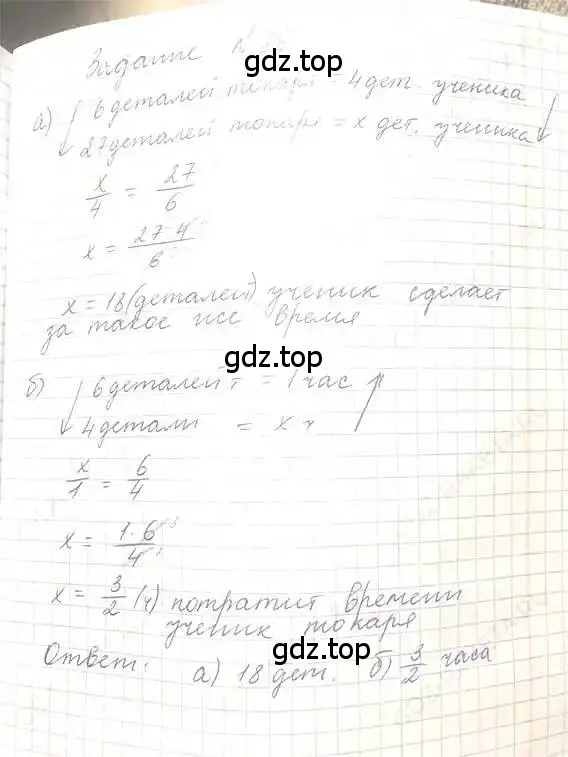 Задание №
gdz.top
а) 6 деталей токаря = 4 дет. ученика
27 деталей токаря = x дет. ученика
x/4 = 27/6
x = 27·4/6
x = 18 (деталей) ученик сделает
за такое же время
gdz.top
б) 6 деталей т = 1 час
4 детали = x ч
x/1 = 6/4
x = 1·6/4
x = 3/2 (ч) потратит времени
ученик токаря
Ответ: а) 18 дет. б) 3/2 часа
gdz.top